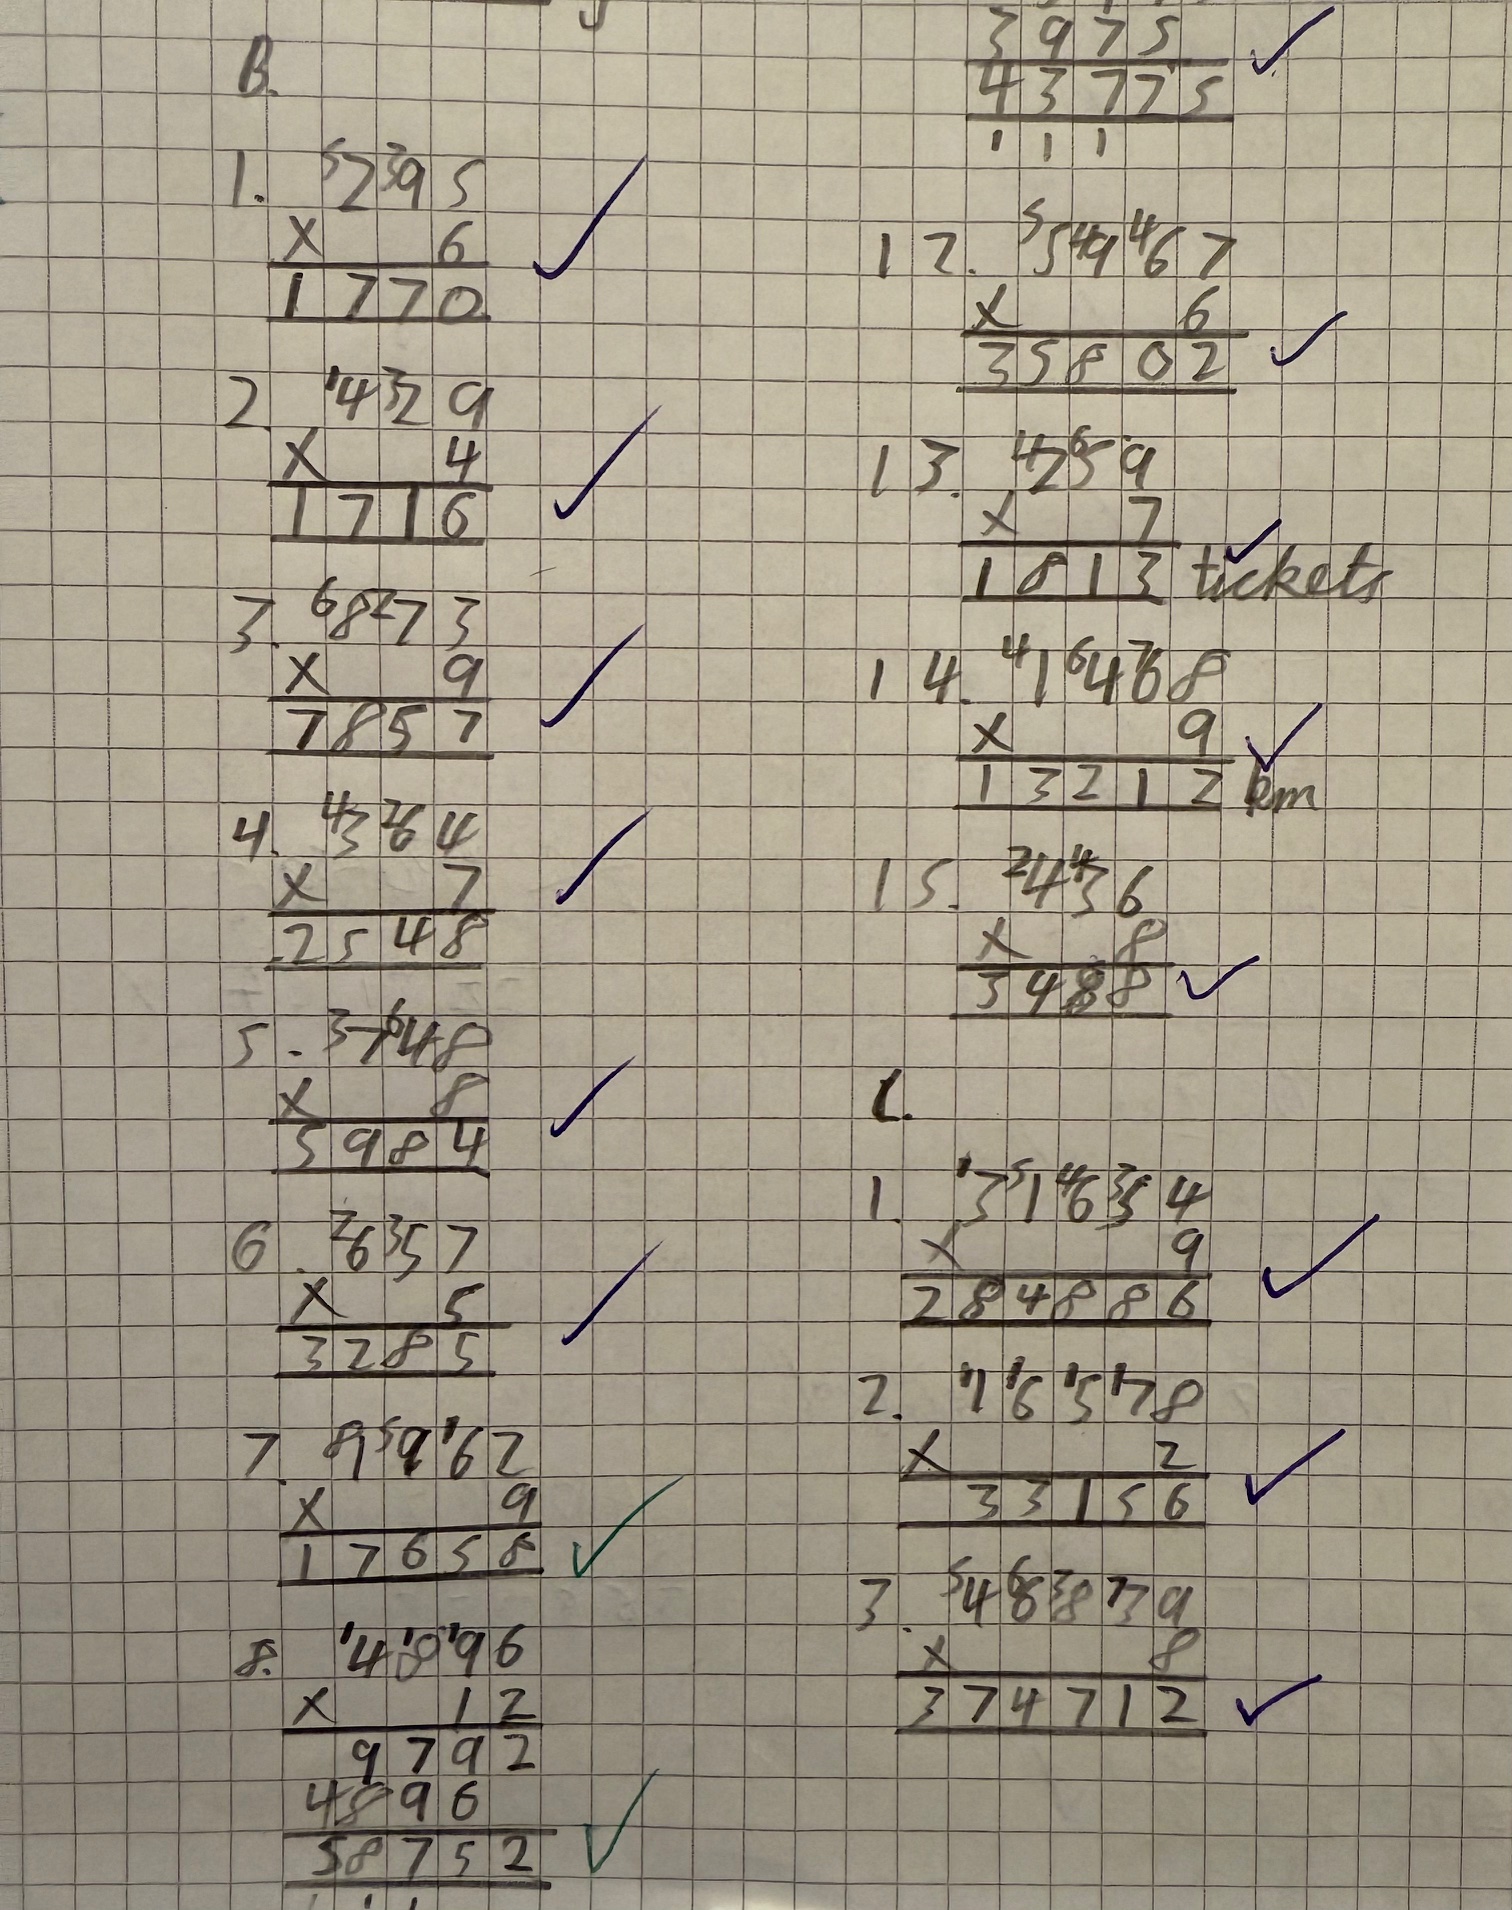 B.
1. 295
x 6
1770
2. 429
x 4
1716
3. 873
x 9
7857
4. 364
x 7
2548
5. 748
x 8
5984
6. 657
x 5
3285
7. 1962
x 9
17658
8. 4896
x 12
9792
4896
58752
1 1 1
3975
43775
1 1 1
12. 5967
x 6
35802
13. 259
x 7
1813 tickets
14. 1468
x 9
13212 km
15. 436
x 8
3488
C.
1. 31654
x 9
284886
2. 16578
x 2
33156
3. 46839
x 8
374712